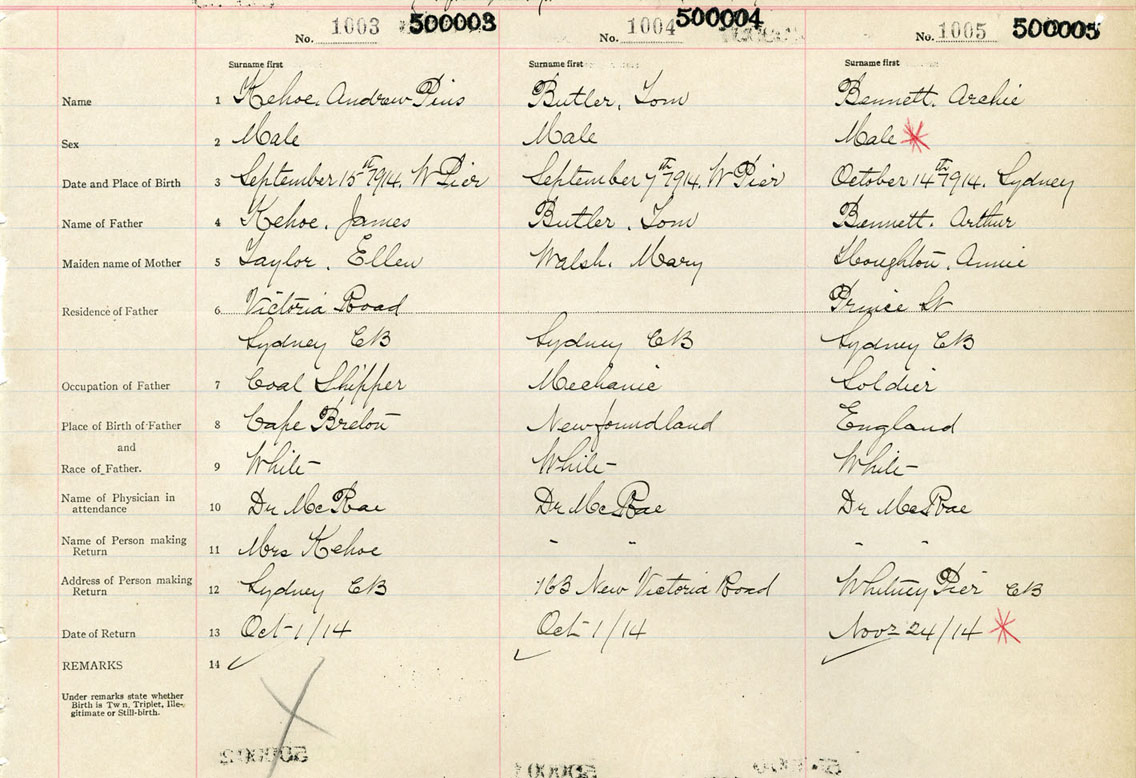 No. 1003 500003 No. 1004 500004 No. 1005 500005
Surname first Surname first Surname first
Name 1 Kehoe, Andrew Pius Butler, Tom Bennett, Archie
Sex 2 Male Male Male
Date and Place of Birth 3 September 15th 1914, W Pier September 7th 1914, W Pier October 14th 1914, Sydney
Name of Father 4 Kehoe, James Butler, Tom Bennett, Arthur
Maiden name of Mother 5 Taylor, Ellen Walsh, Mary Houghton, Annie
Residence of Father 6 Victoria Road Prince St
Sydney CB Sydney CB Sydney CB
Occupation of Father 7 Coal Shipper Mechanic Soldier
Place of Birth of Father 8 Cape Breton Newfoundland England
and
Race of Father. 9 White White White
Name of Physician in
attendance 10 Dr McRae Dr McRae Dr McRae
Name of Person making
Return 11 Mrs Kehoe " " " "
Address of Person making
Return 12 Sydney CB 163 New Victoria Road Whitney Pier CB
Date of Return 13 Oct 1/14 Oct 1/14 Novr 24/14
REMARKS 14
Under remarks state whether
Birth is Tw n, Triplet, Ille-
gitimate or Still-birth.